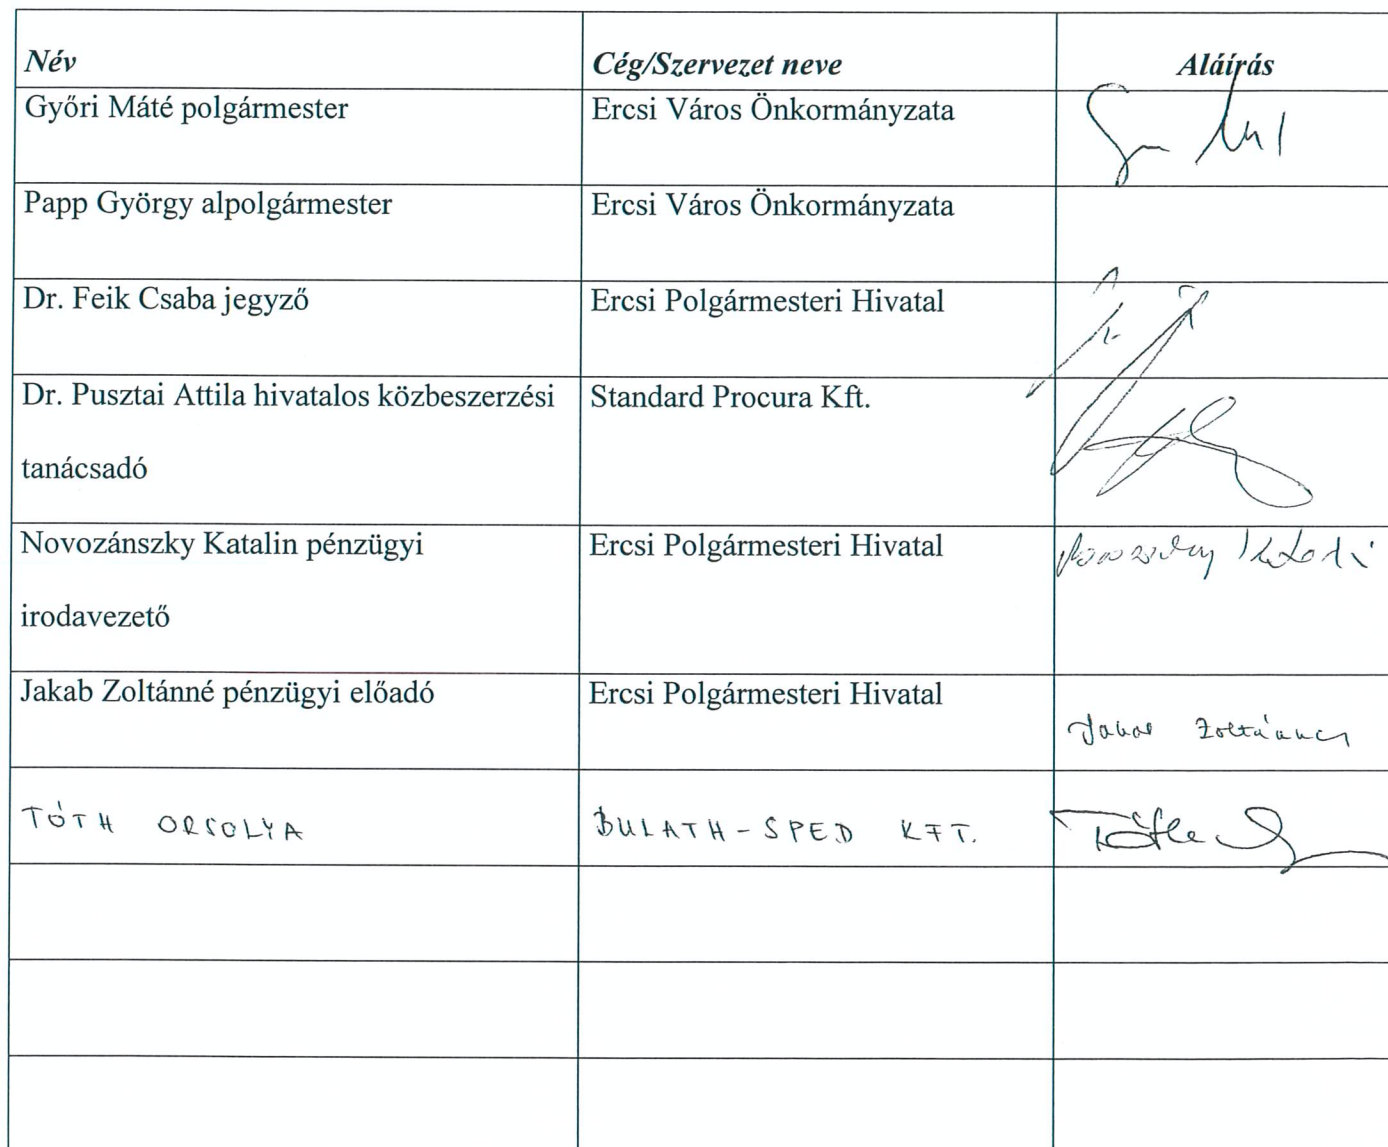 Név Cég/Szervezet neve Aláírás
Győri Máté polgármester Ercsi Város Önkormányzata
Papp György alpolgármester Ercsi Város Önkormányzata
Dr. Feik Csaba jegyző Ercsi Polgármesteri Hivatal
Dr. Pusztai Attila hivatalos közbeszerzési Standard Procura Kft.
tanácsadó
Novozánszky Katalin pénzügyi Ercsi Polgármesteri Hivatal
irodavezető
Jakab Zoltánné pénzügyi előadó Ercsi Polgármesteri Hivatal
Jakab Zoltánné
TÓTH ORSOLYA BULATH-SPED KFT. Tóth